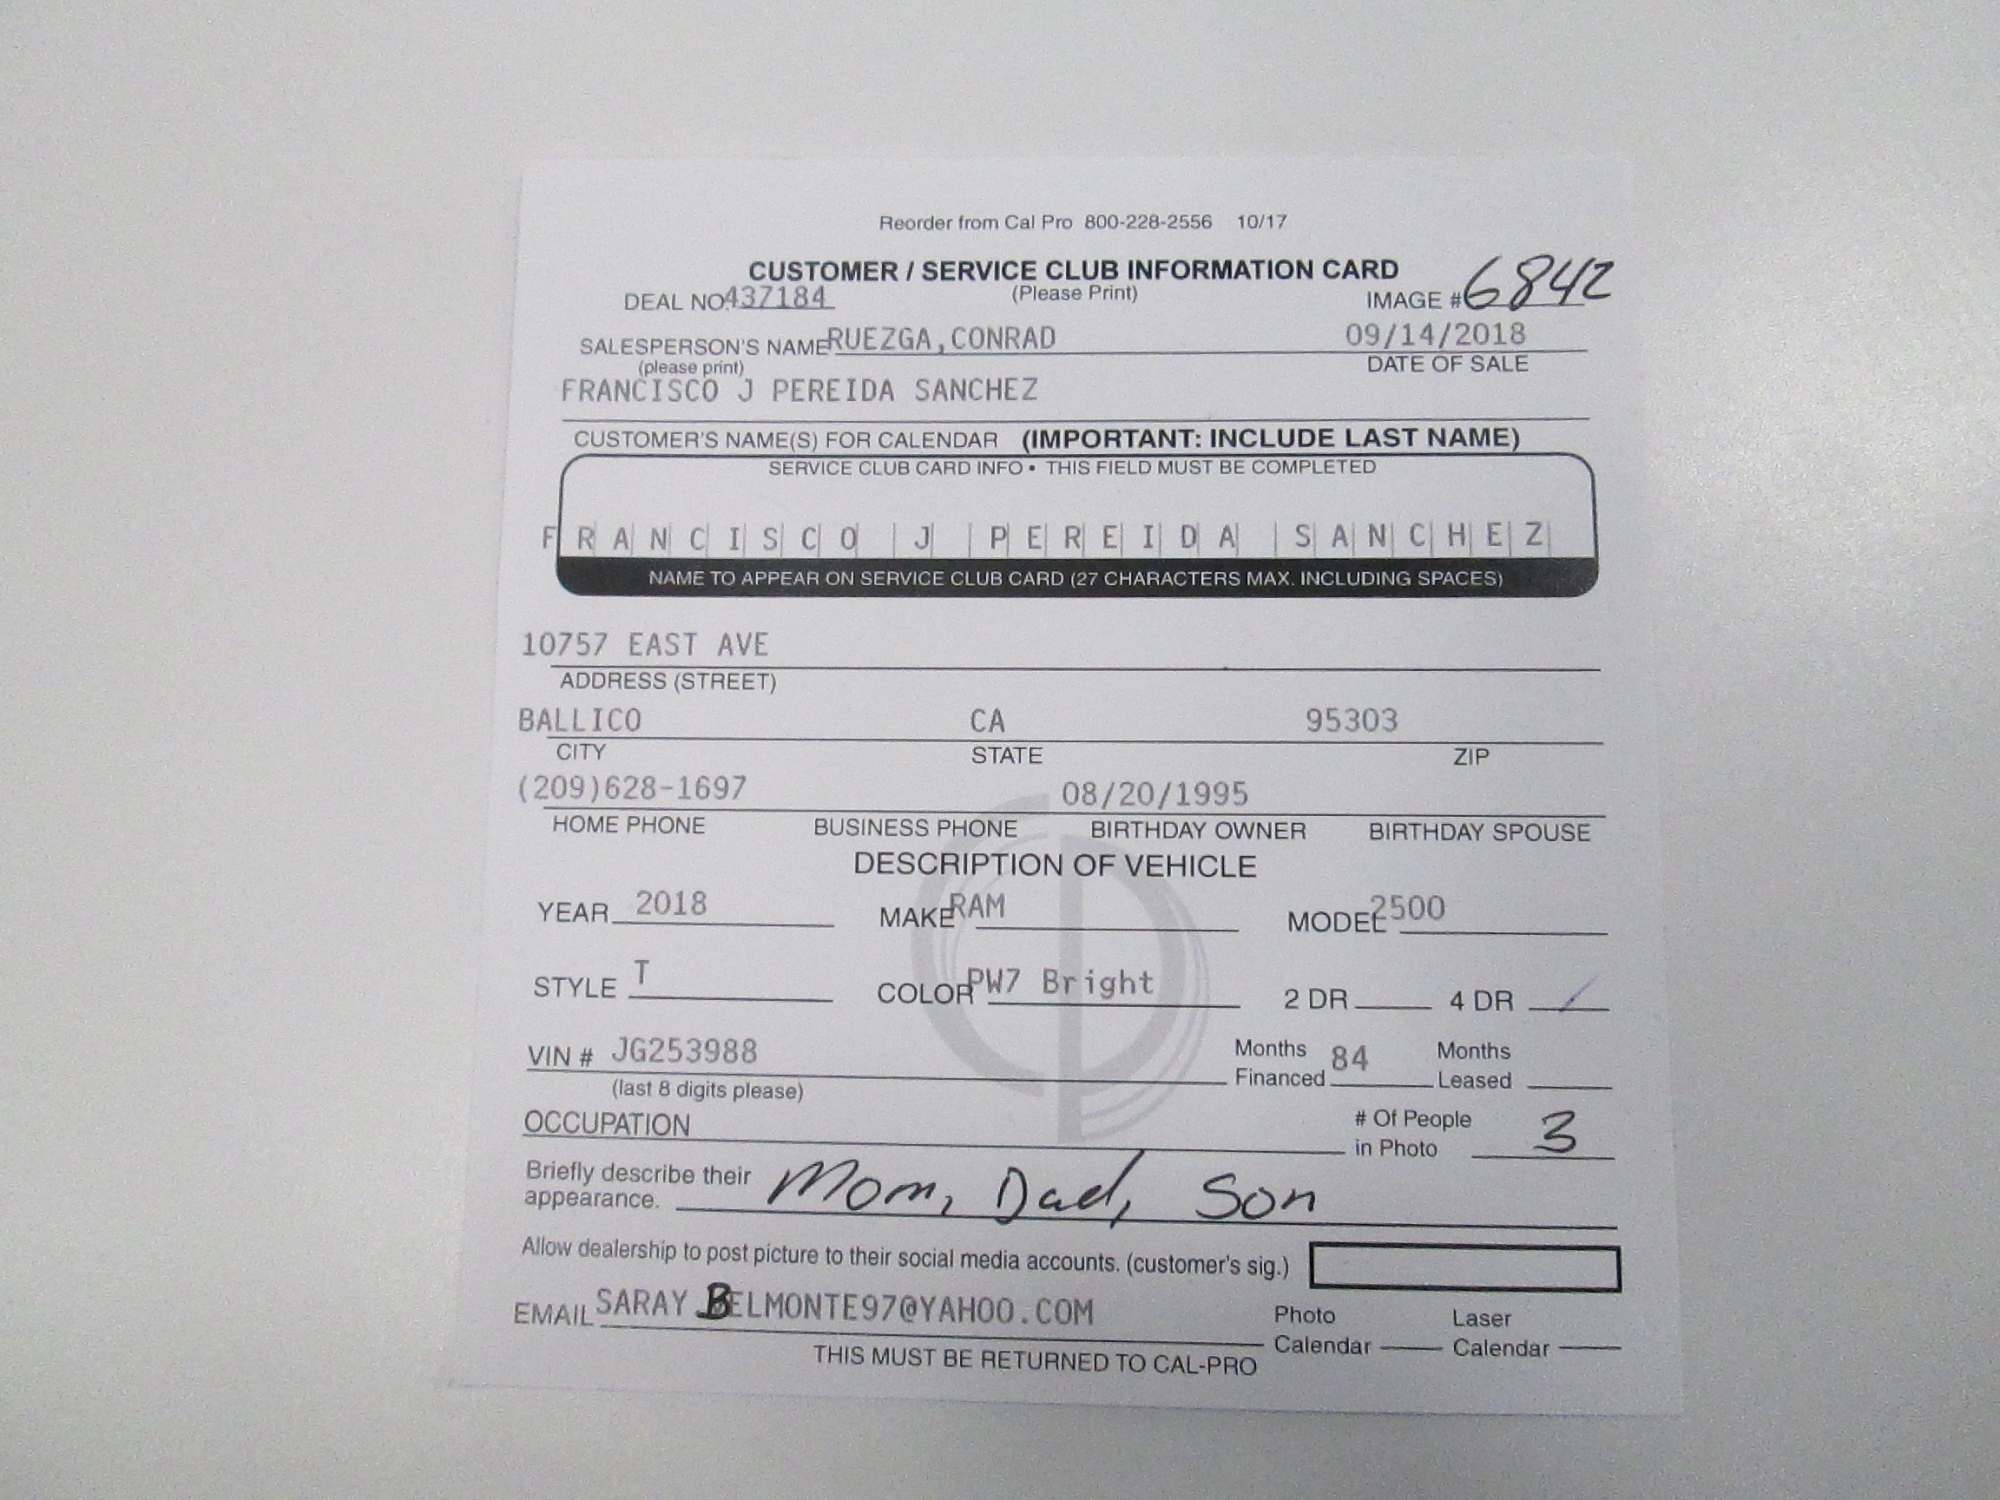 Reorder from Cal Pro 800-228-2556 10/17
CUSTOMER / SERVICE CLUB INFORMATION CARD
DEAL NO. 437184 (Please Print) IMAGE # 6842
SALESPERSON'S NAME RUEZGA,CONRAD 09/14/2018
(please print) DATE OF SALE
FRANCISCO J PEREIDA SANCHEZ
CUSTOMER'S NAME(S) FOR CALENDAR (IMPORTANT: INCLUDE LAST NAME)
SERVICE CLUB CARD INFO • THIS FIELD MUST BE COMPLETED
FRANCISCO J PEREIDA SANCHEZ
NAME TO APPEAR ON SERVICE CLUB CARD (27 CHARACTERS MAX. INCLUDING SPACES)
10757 EAST AVE
ADDRESS (STREET)
BALLICO CA 95303
CITY STATE ZIP
(209)628-1697 08/20/1995
HOME PHONE BUSINESS PHONE BIRTHDAY OWNER BIRTHDAY SPOUSE
DESCRIPTION OF VEHICLE
YEAR 2018 MAKE RAM MODEL 2500
STYLE T COLOR PW7 Bright 2 DR 4 DR /
VIN # JG253988 Months Financed 84 Months Leased
(last 8 digits please)
OCCUPATION # Of People in Photo 3
Briefly describe their appearance. Mom, Dad, Son
Allow dealership to post picture to their social media accounts. (customer's sig.)
EMAIL SARAY BELMONTE97@YAHOO.COM Photo Calendar Laser Calendar
THIS MUST BE RETURNED TO CAL-PRO